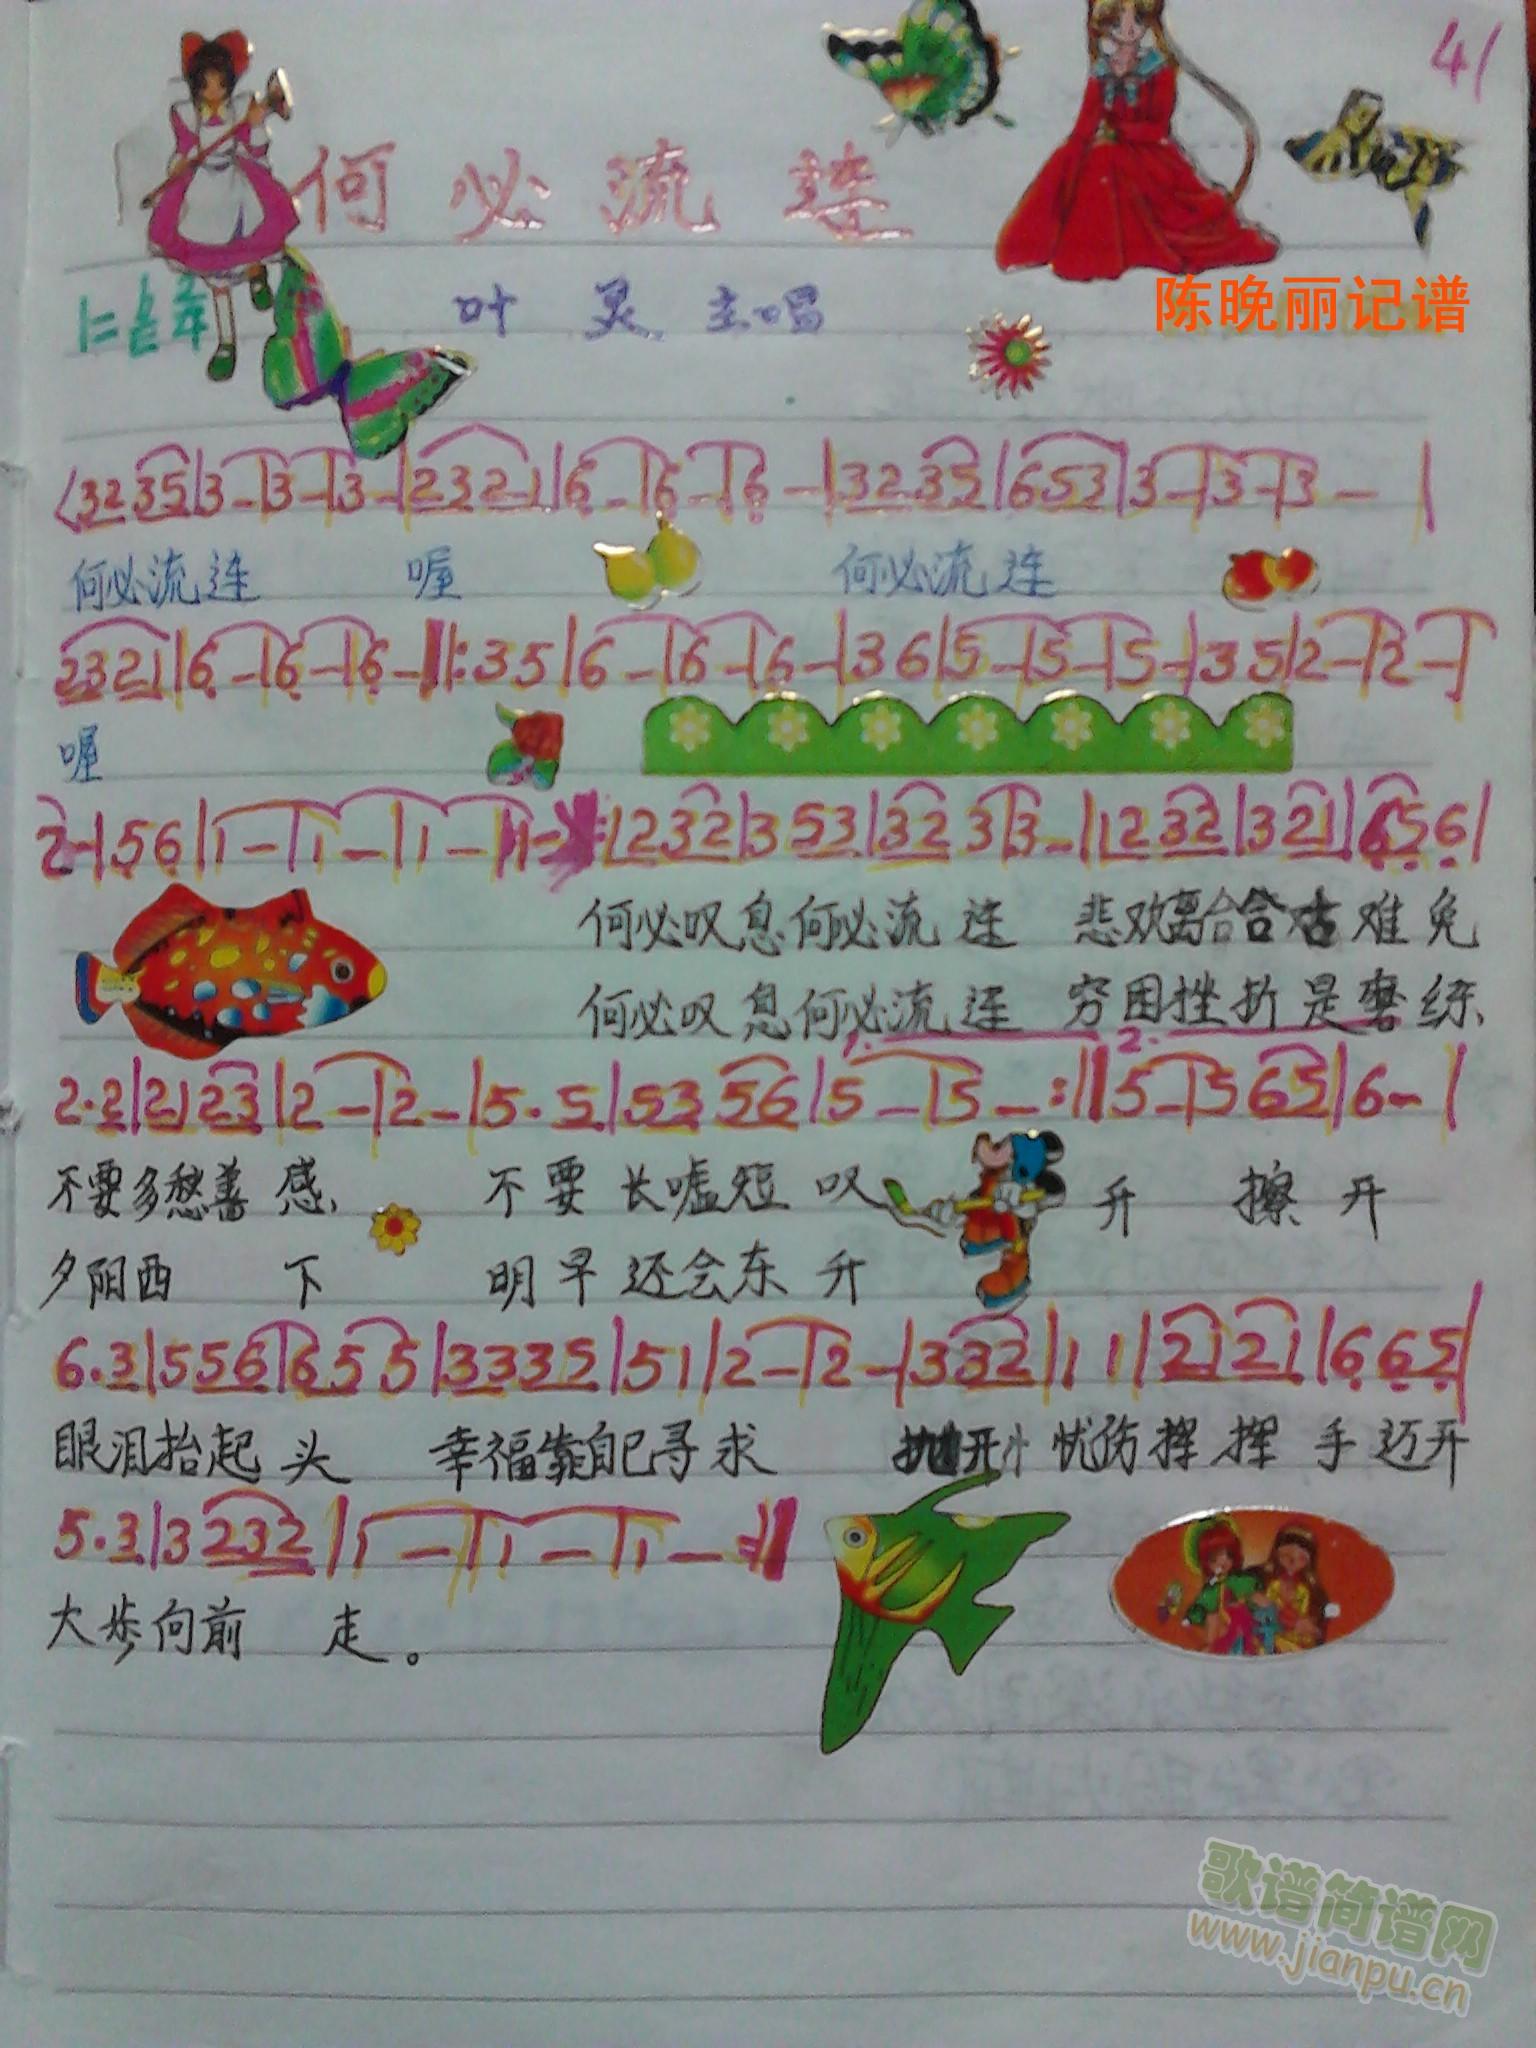 41
何必流连
叶灵主唱
陈晚丽记谱
3235|3-|3-|3-|2321|6-|6-|6-|3235|653|3-|3-|3-|
何必流连 喔 何必流连
2321|6-|6-|6-‖:35|6-|6-|6-|36|5-|5-|5-|35|2-|2-|
喔
2-|56|1-|1-|1-|1-:|1232|353|323|3-|1232|321|656|
何必叹息何必流连 悲欢离合合古难免
何必叹息何必流连 穷困挫折是磨练
1. 2.
2·2|2123|2-|2-|5·5|5356|5-|5-:‖5-|565|6-|
不要多愁善感 不要长嘘短叹 升 擦开
夕阳西 下 明早还会东升
6·3|556|655|3335|51|2-|2-|332|11|2121|665|
眼泪抬起头 幸福靠自己寻求 抛开忧伤挥挥手迈开
5·3|3232|1-|1-|1-:‖
大步向前 走。
歌谱简谱网
www.jianpu.cn